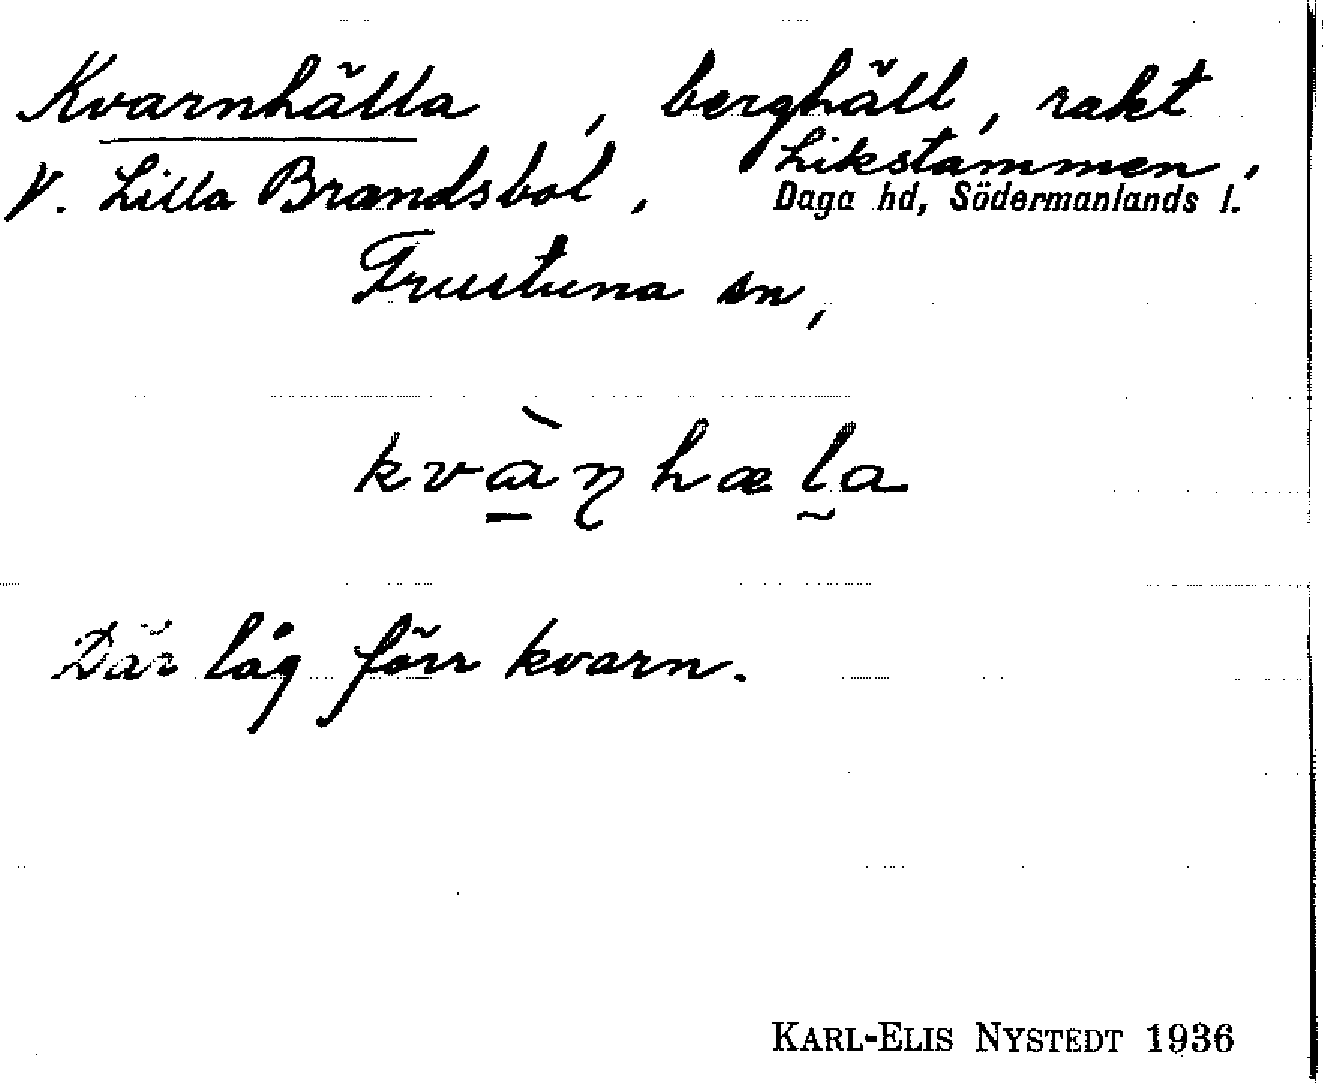 Kvarnhälla, berghäll, rakt
V. Lilla Brandsbol, Likstammen,
Daga hd, Södermanlands l.
Frustuna sn,
kvànhæla
Där låg förr kvarn.
KARL-ELIS NYSTEDT 1936